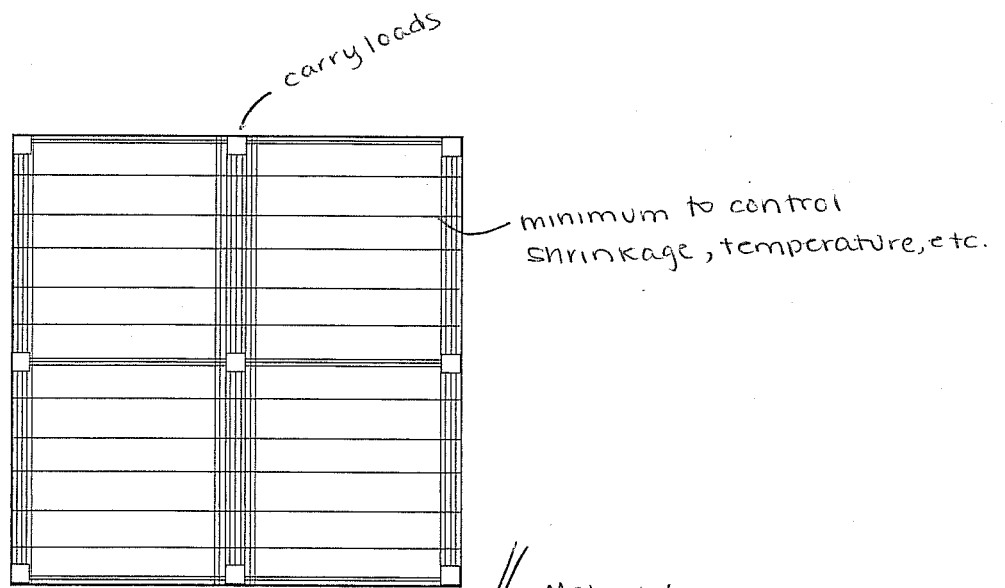 carry loads
minimum to control
shrinkage, temperature, etc.